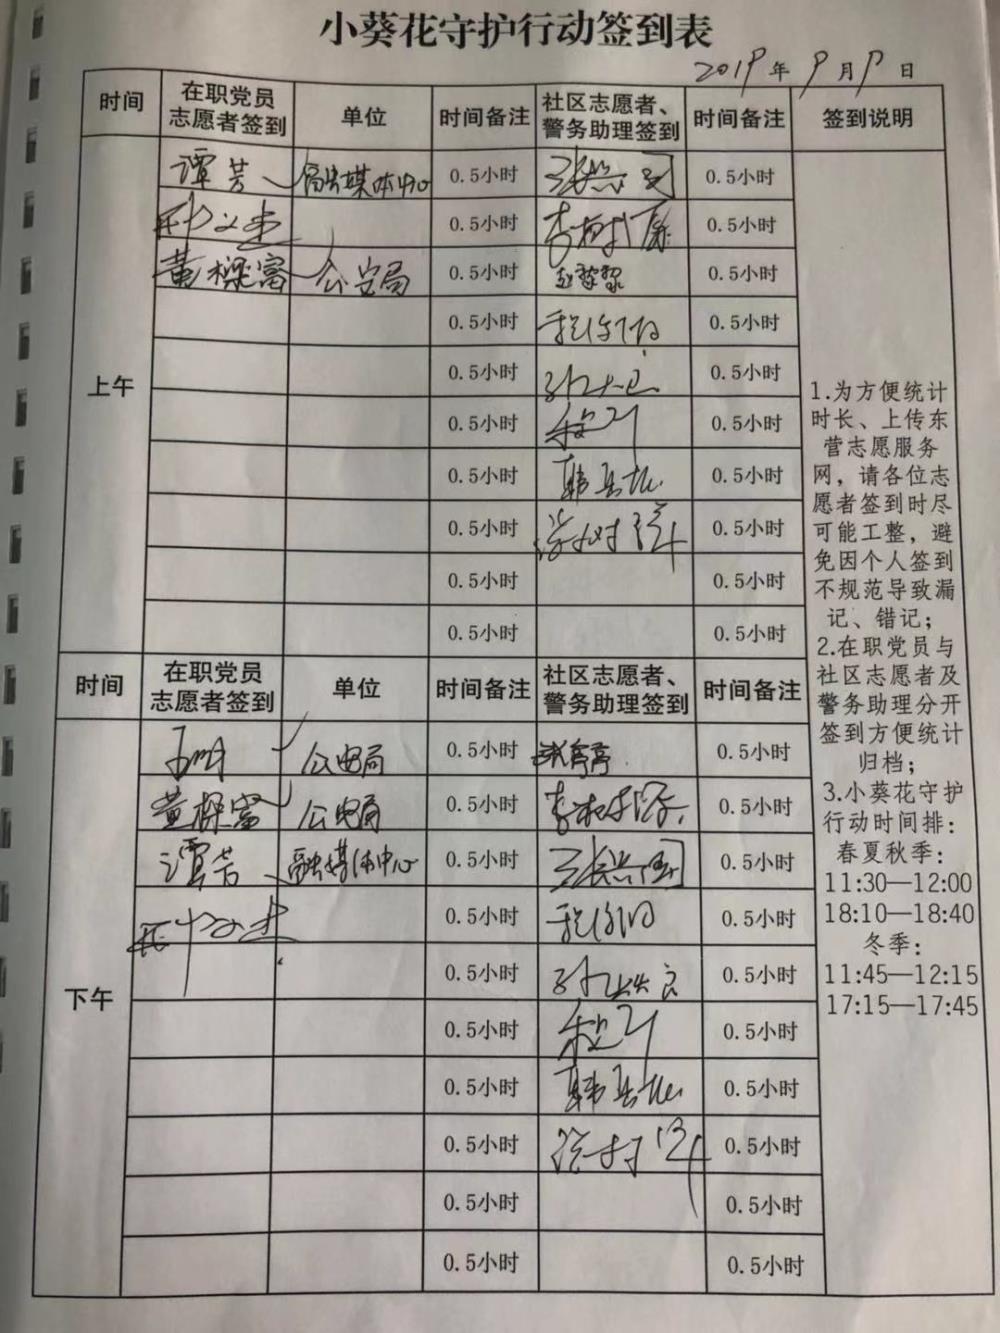 小葵花守护行动签到表
2019年9月9日
时间 在职党员志愿者签到 单位 时间备注 社区志愿者、警务助理签到 时间备注 签到说明
上午
谭芳 融媒体中心 0.5小时 0.5小时
0.5小时 0.5小时
黄樑富 公安局 0.5小时 0.5小时
0.5小时 0.5小时
0.5小时 0.5小时
0.5小时 程 0.5小时
0.5小时 韩 0.5小时
0.5小时 0.5小时
0.5小时 0.5小时
0.5小时 0.5小时
时间 在职党员志愿者签到 单位 时间备注 社区志愿者、警务助理签到 时间备注
下午
公安局 0.5小时 0.5小时
黄樑富 公安局 0.5小时 0.5小时
谭芳 融媒体中心 0.5小时 0.5小时
0.5小时 0.5小时
0.5小时 0.5小时
0.5小时 程 0.5小时
0.5小时 韩 0.5小时
0.5小时 0.5小时
0.5小时 0.5小时
0.5小时 0.5小时
1.为方便统计
时长、上传东
营志愿服务
网，请各位志
愿者签到时尽
可能工整，避
免因个人签到
不规范导致漏
记、错记；
2.在职党员与
社区志愿者及
警务助理分开
签到方便统计
归档；
3.小葵花守护
行动时间排：
春夏秋季：
11:30—12:00
18:10—18:40
冬季：
11:45—12:15
17:15—17:45